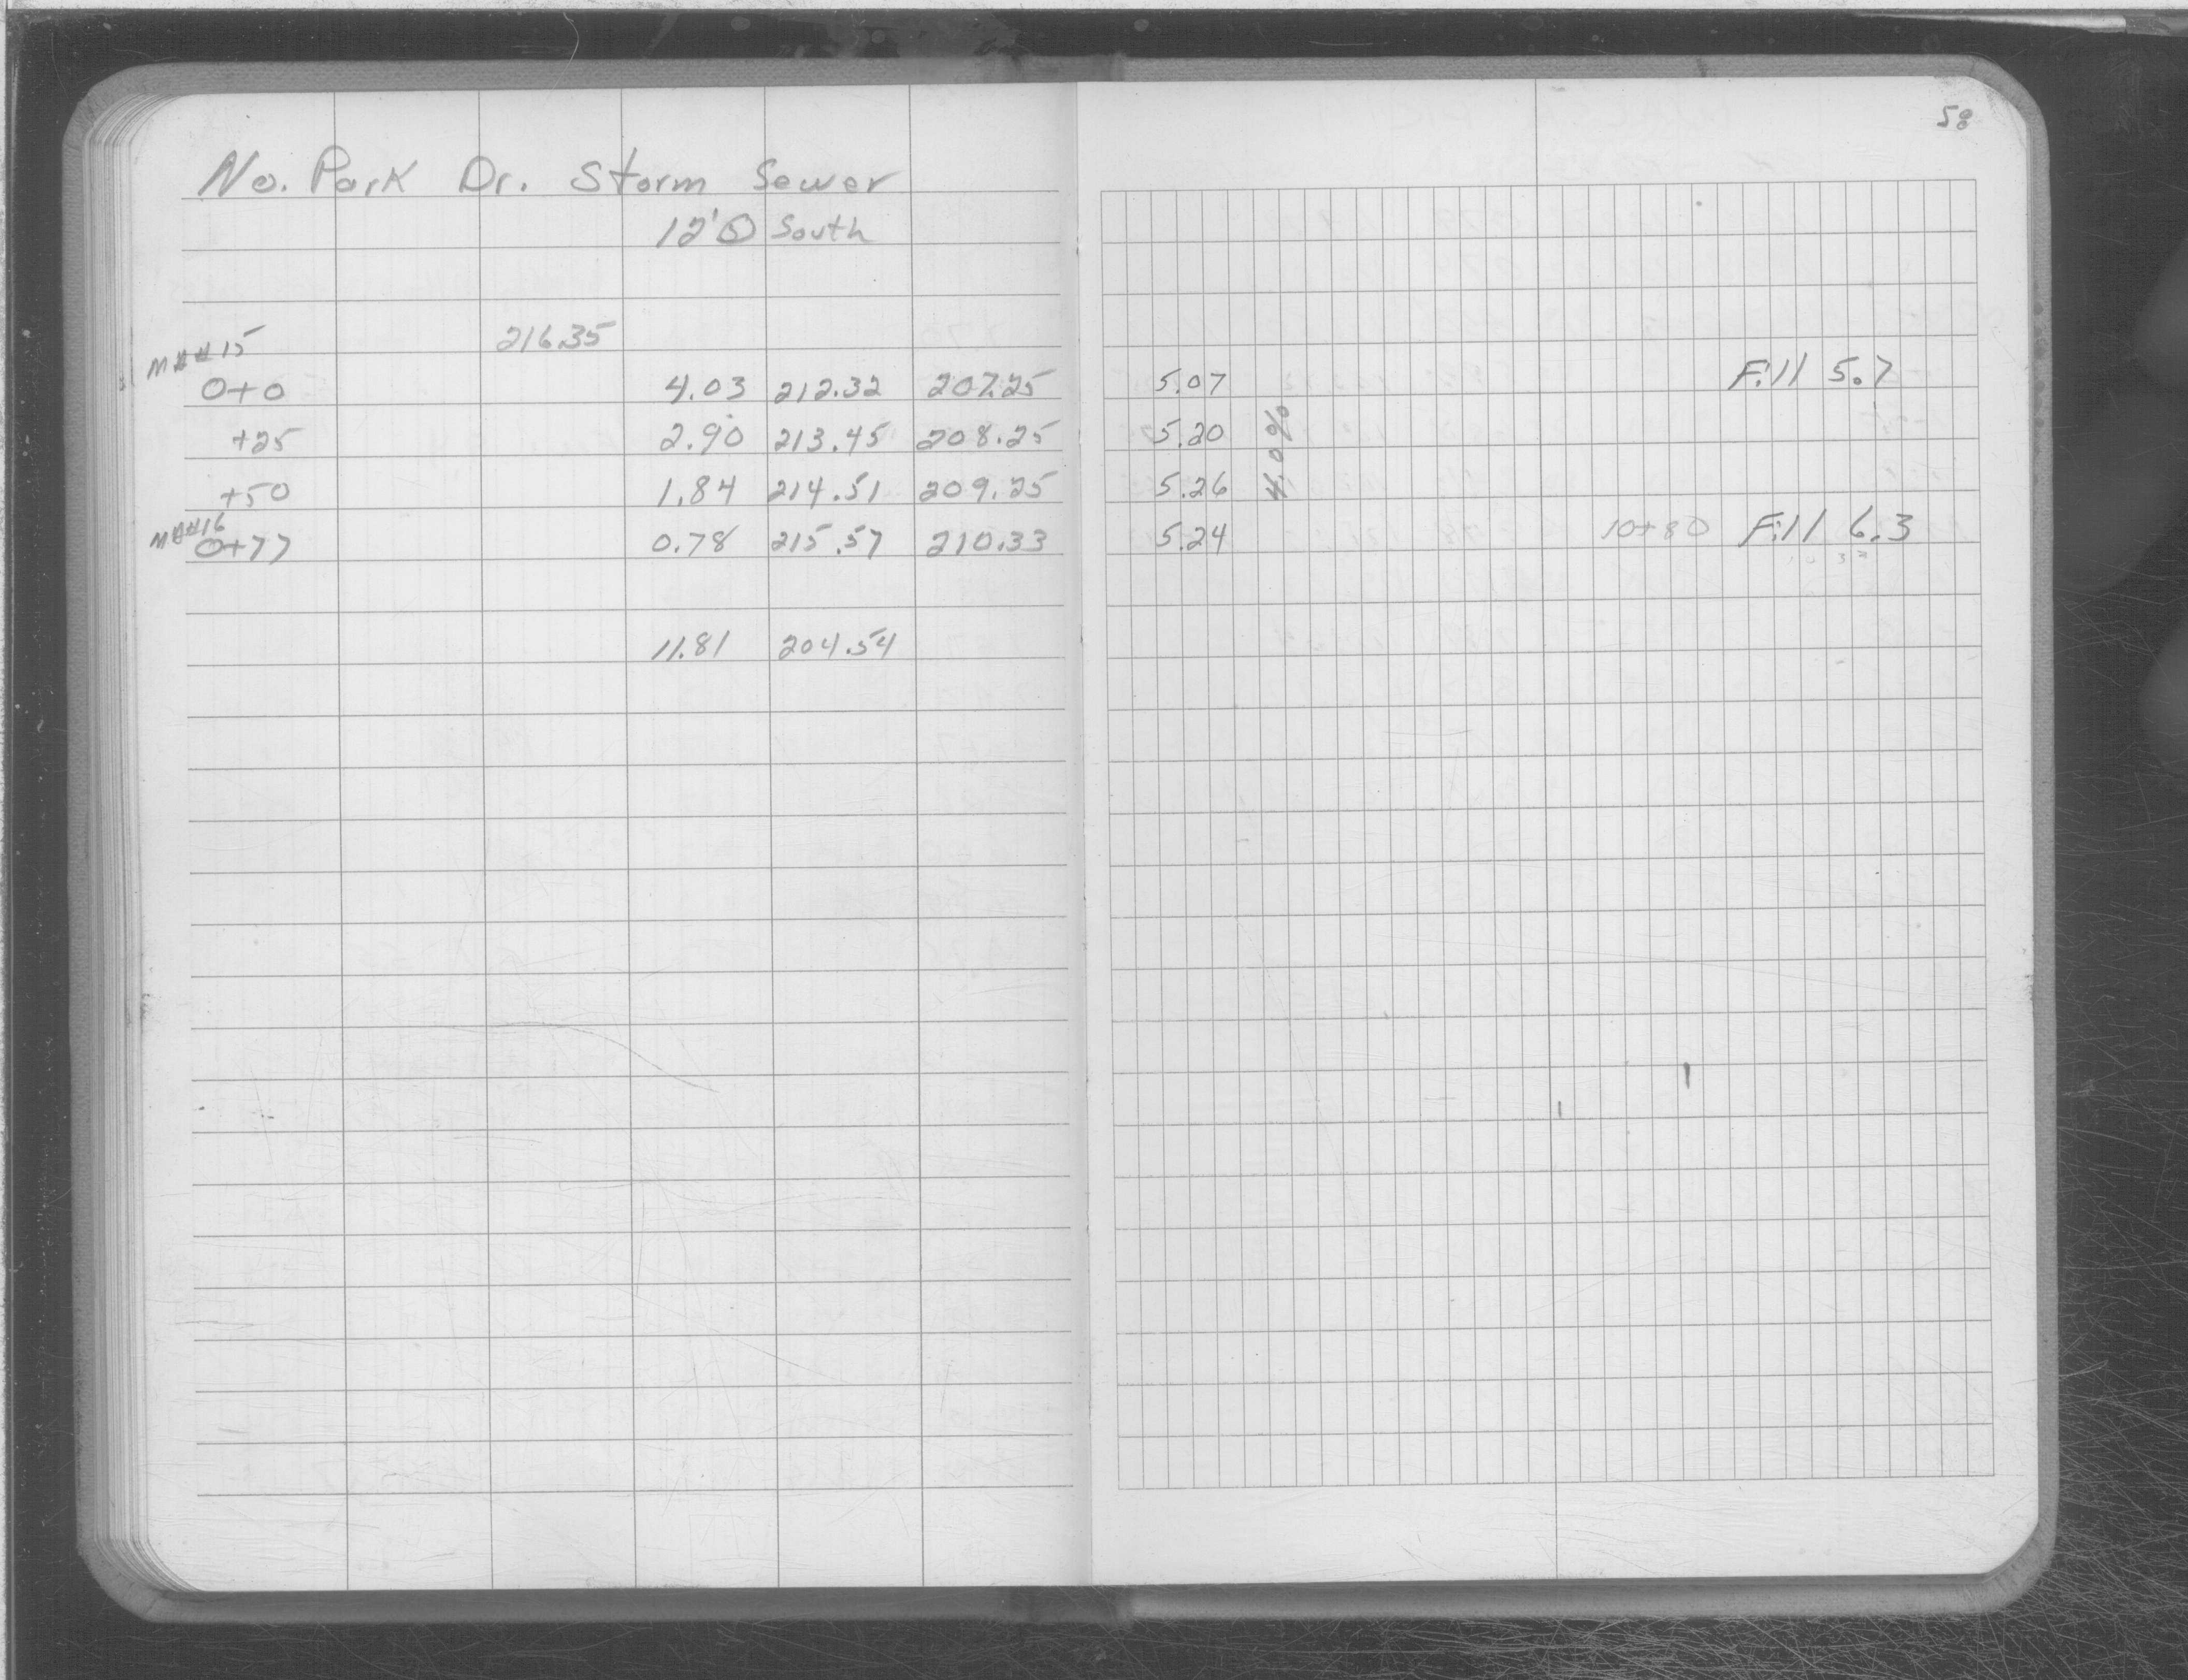 58
No. Park Dr. Storm Sewer
12' South
MH#15 216.35
0+0 4.03 212.32 207.25 5.07 Fill 5.7
+25 2.90 213.45 208.25 5.20 4.0%
+50 1.84 214.51 209.25 5.26
MH#16
0+77 0.78 215.57 210.33 5.24 10+80 Fill 6.3
11.81 204.54